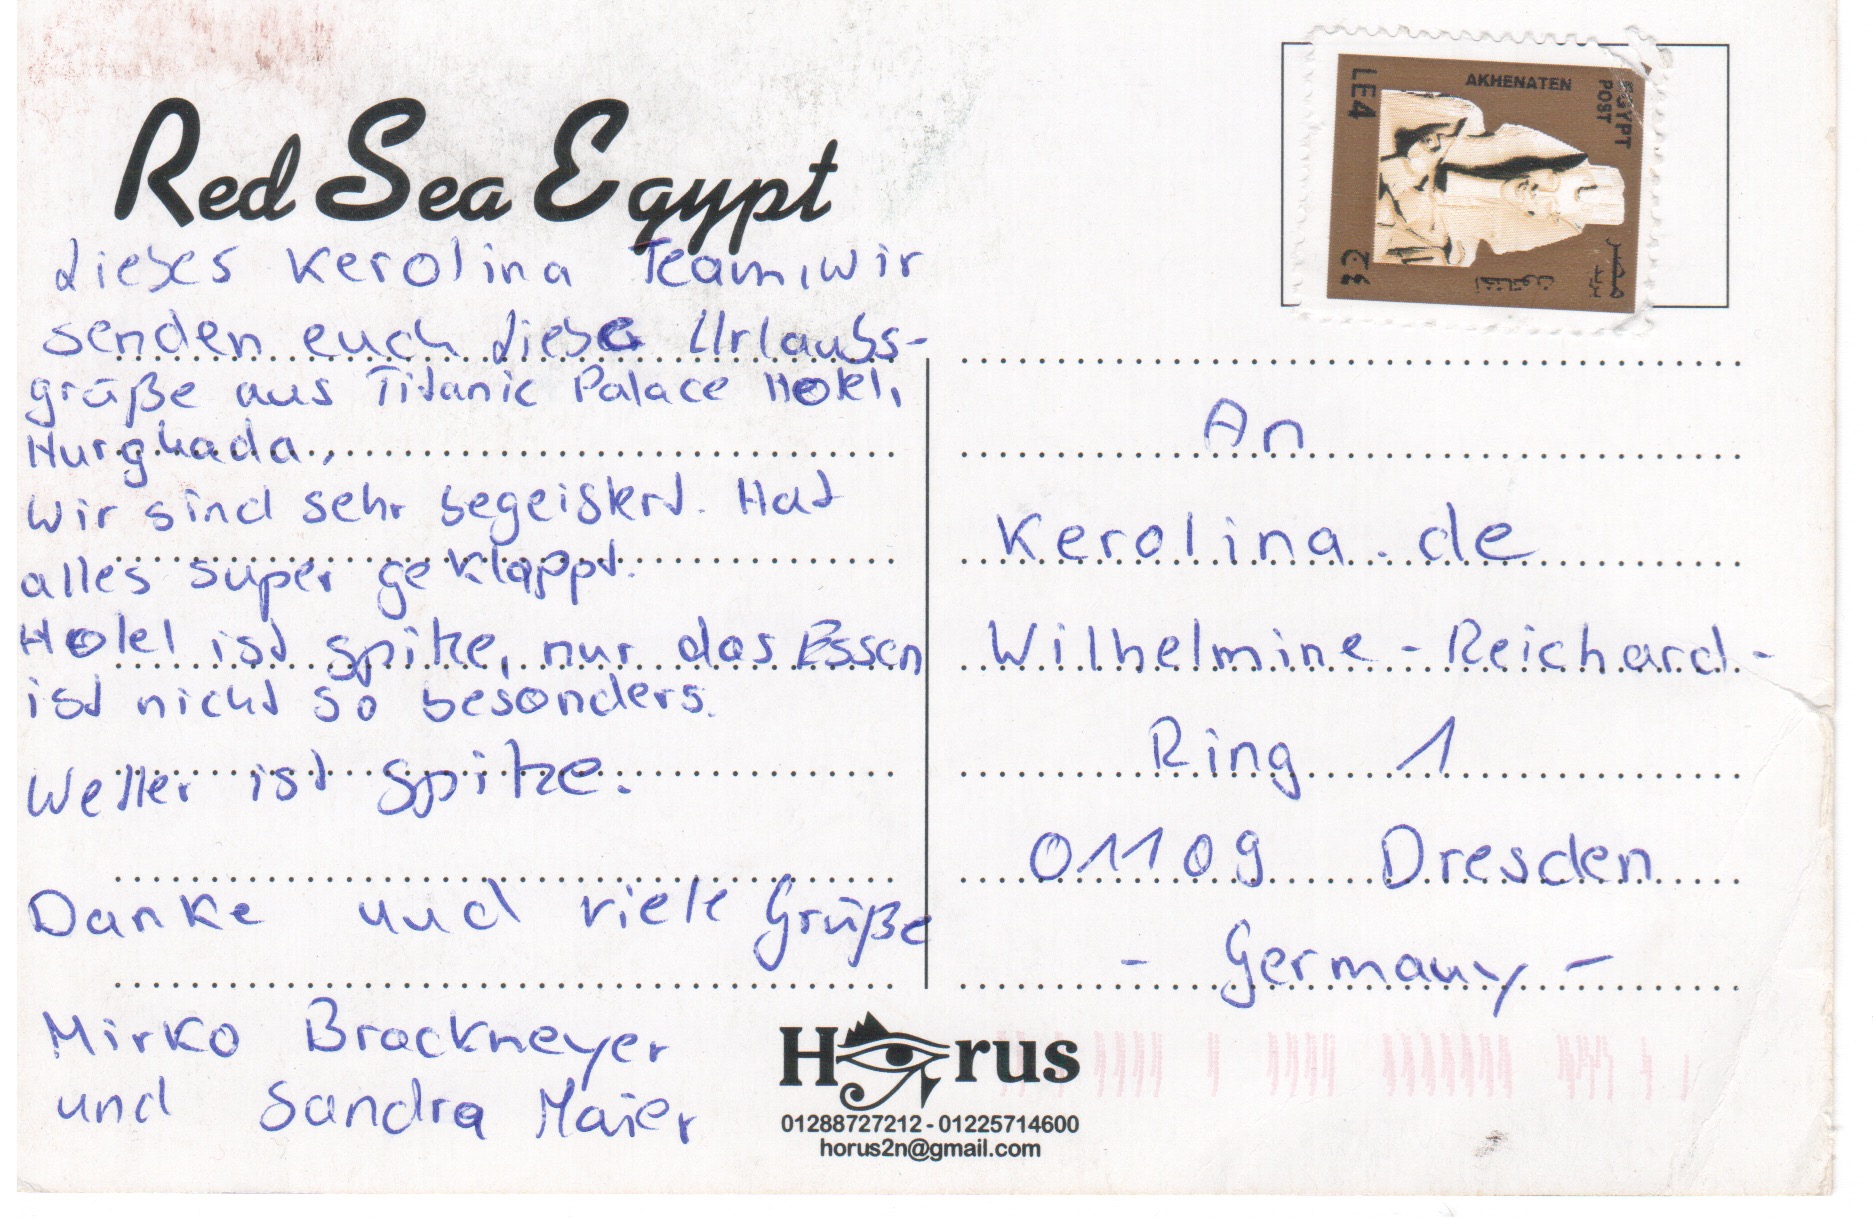 Red Sea Egypt
Liebes Kerolina Team, wir
senden euch liebe Urlaubs-
grüße aus Titanic Palace Hotel,
Hurghada.
Wir sind sehr begeistert. Hat
alles super geklappt.
Hotel ist spitze, nur das Essen
ist nicht so besonders.
Wetter ist spitze.
Danke und viele Grüße
Mirko Brackmeyer
und Sandra Maier
AKHENATEN
EGYPT
POST
LE4
٤ج
اخناتون
مصر
بريد
An
Kerolina.de
Wilhelmine-Reichard-
Ring 1
01109 Dresden
- Germany -
Horus
01288727212 - 01225714600
horus2n@gmail.com